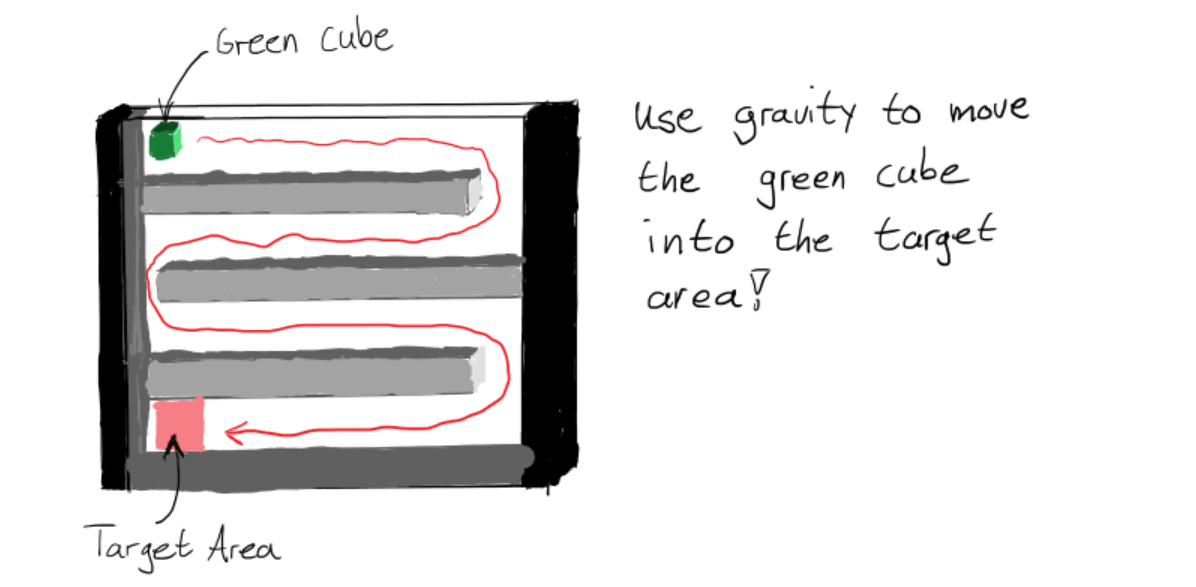 Green Cube
Use gravity to move
the green cube
into the target
area!
Target Area